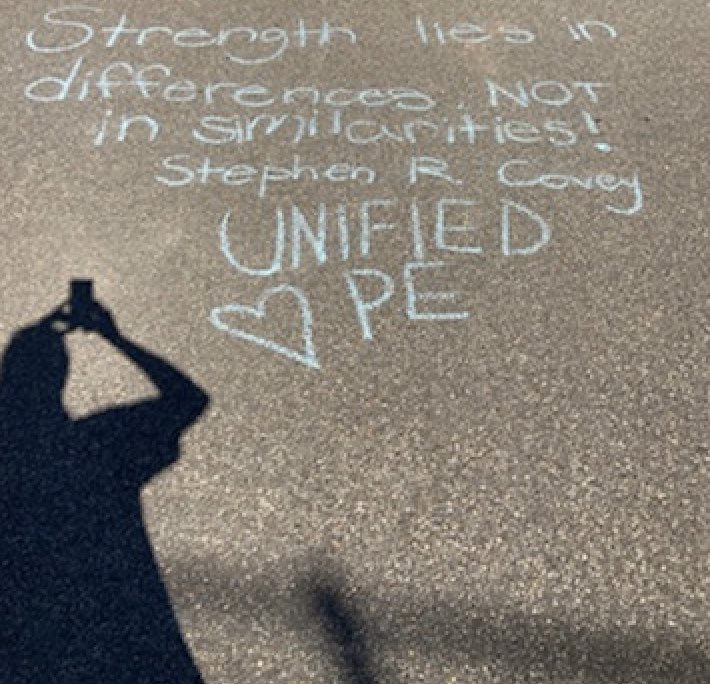 Strength lies in
differences, NOT
in similarities!
Stephen R. Covey
UNIFIED
PE